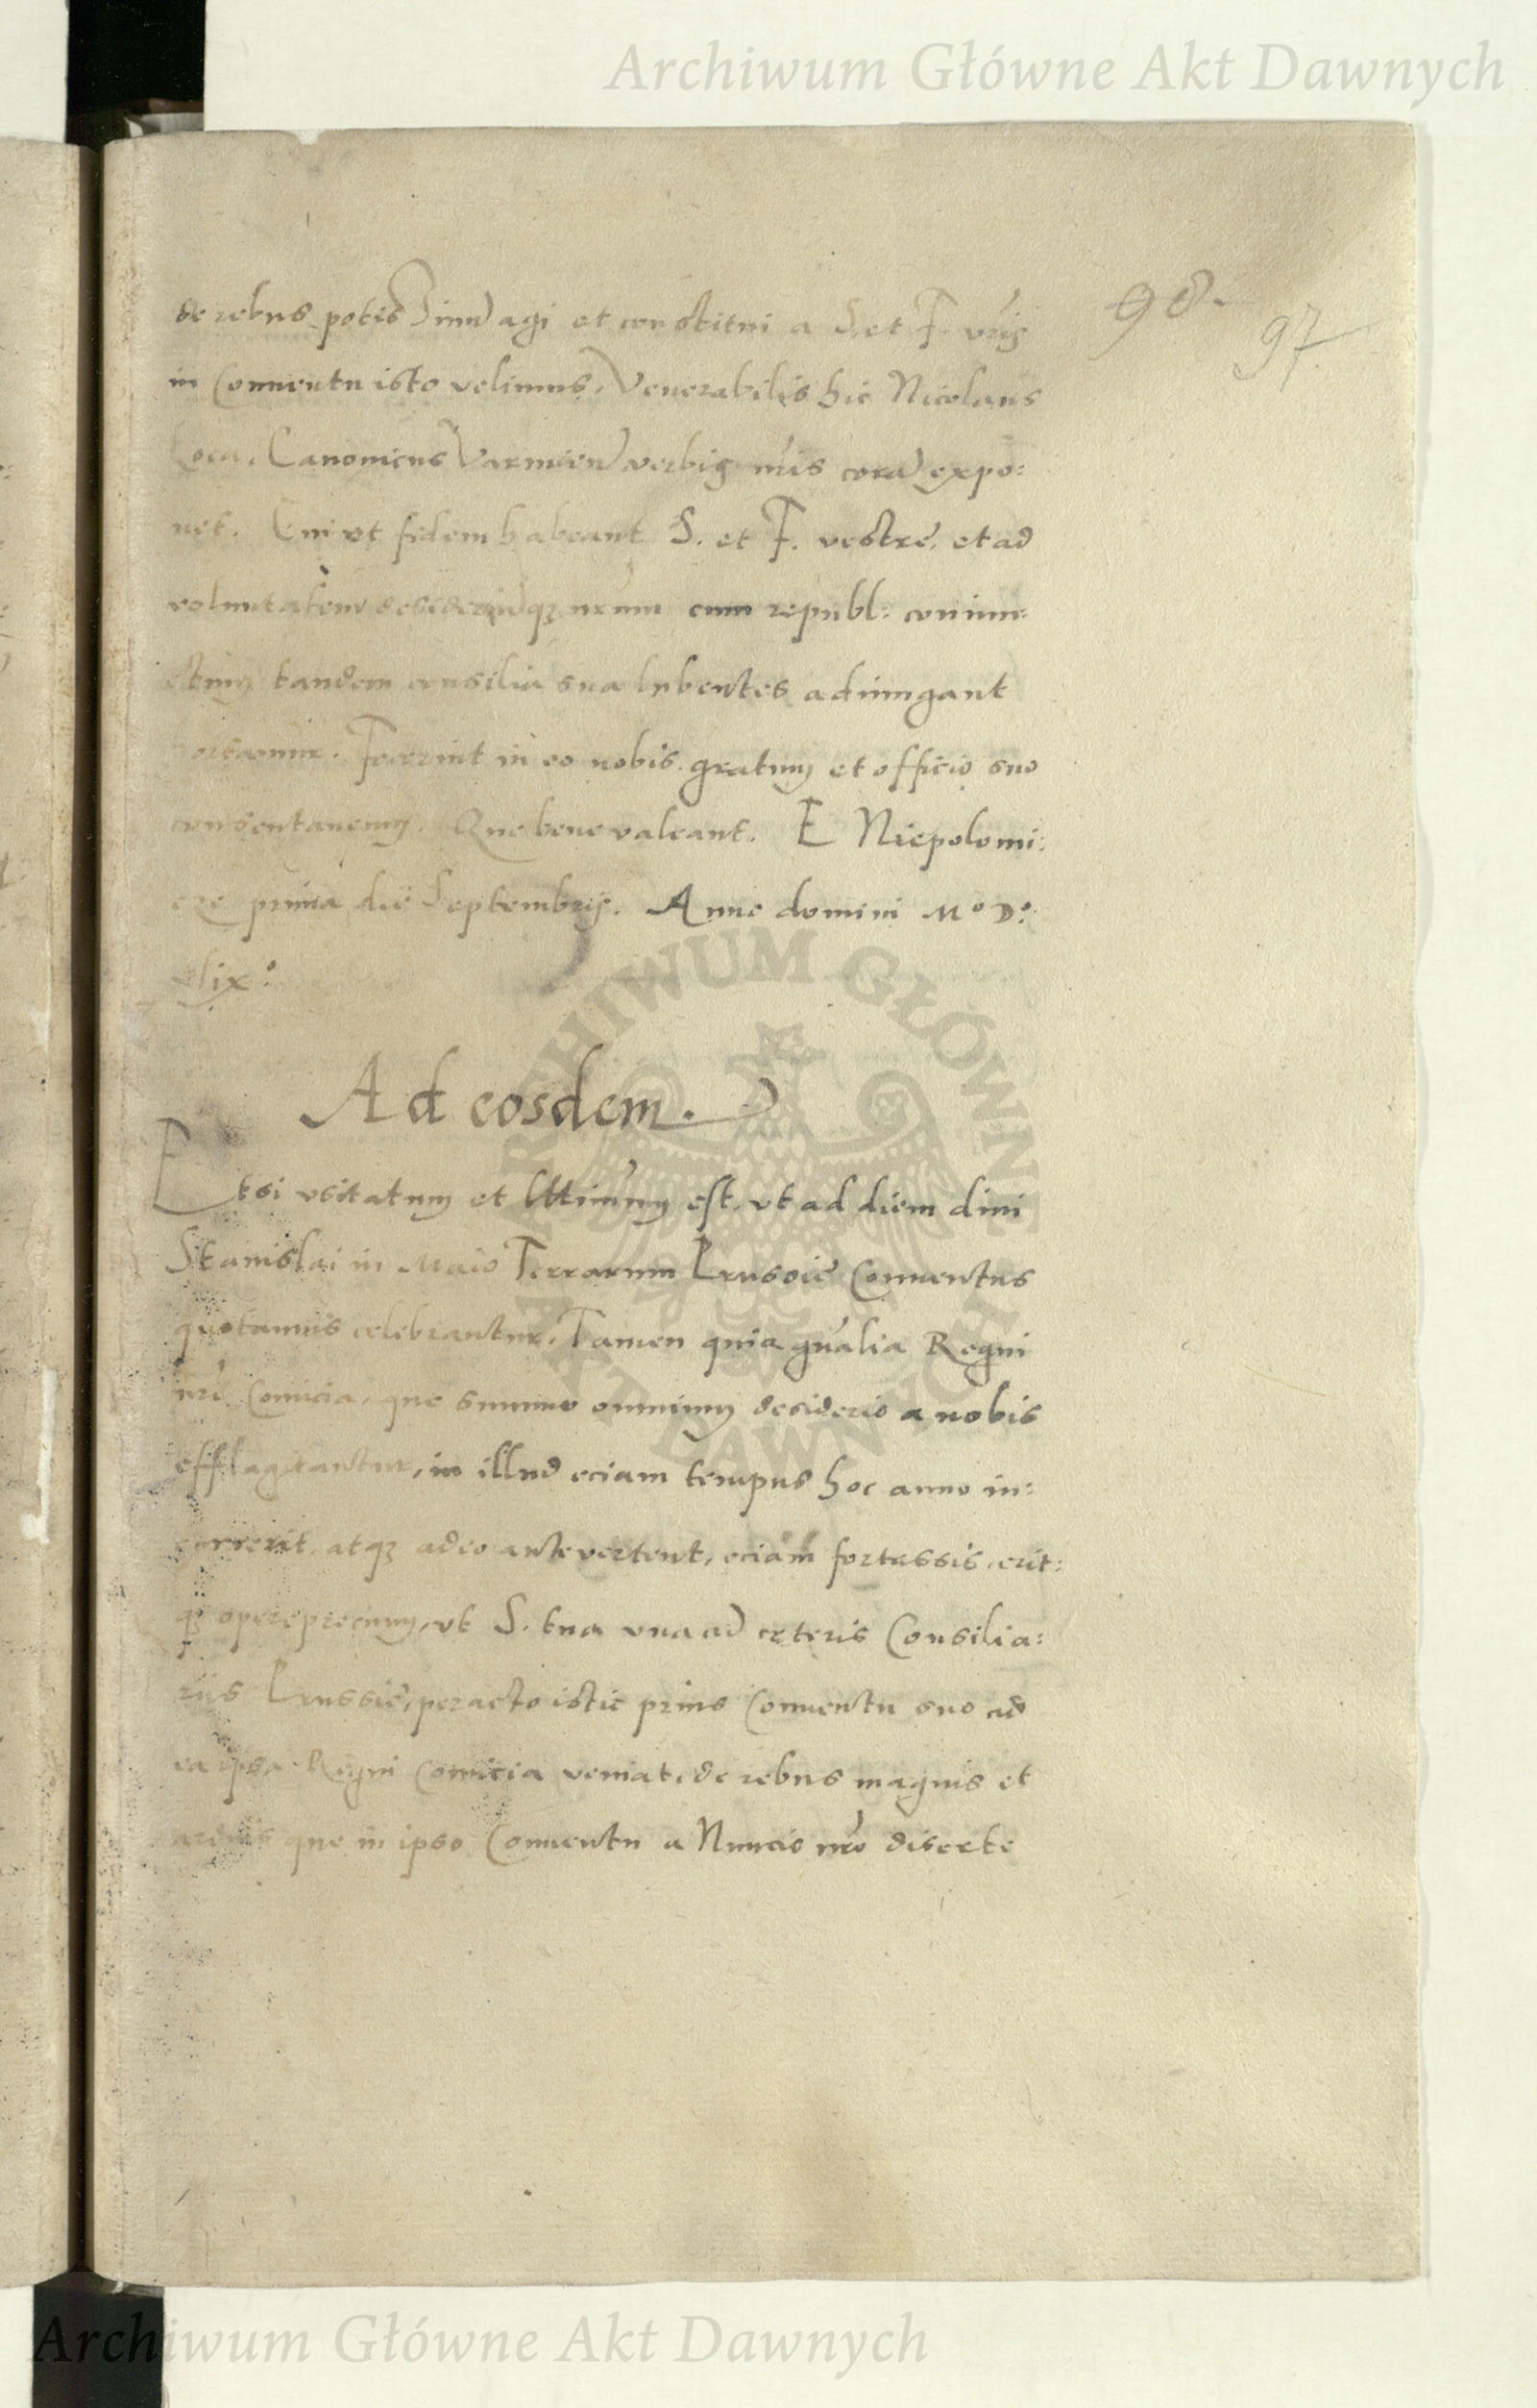 Archiwum Główne Akt Dawnych
98.
97
de rebus potis simu agi et constitui a S. et F. vris
in Conuentu isto velimus, Venerabilis hic Nicolaus
Loca. Canonicus Varmien verbis nris cora expo:
net. Cui vt fidem habeant S. et F. vestre, et ad
voluntatem desideriuqz nrum cum republ: coniun:
ctum tandem consilia sua lubentes adiungant
hortamur. Fecerint in eo nobis gratum et officio suo
consentaneum. Que bene valeant. E Niepolomi:
cze prima die Septembris. Anno domini Mº Dº.
lixº.
Ad eosdem.
Etsi vsitatum et est, vt ad diem diui
Stanislai in Maio Terrarum Prussie Conuentus
quotannis celebrantur, Tamen quia gnalia Regni
nri Comicia, que summo omnium desiderio a nobis
efflagitantur, in illud eciam tempus hoc anno in:
currerit, atqz adeo antevertent, eciam fortassis, erit:
qz opereprecium, vt S. tua vna cu ceteris Consilia:
riis Prussie, peracto istic prius Conuentu suo ad
ea ipsa Regni Comicia veniat, de rebus magnis et
arduis que in ipso Conuentu a Nuncio nro diserte
ARCHIWUM GŁÓWNE
AKT DAWNYCH
Archiwum Główne Akt Dawnych